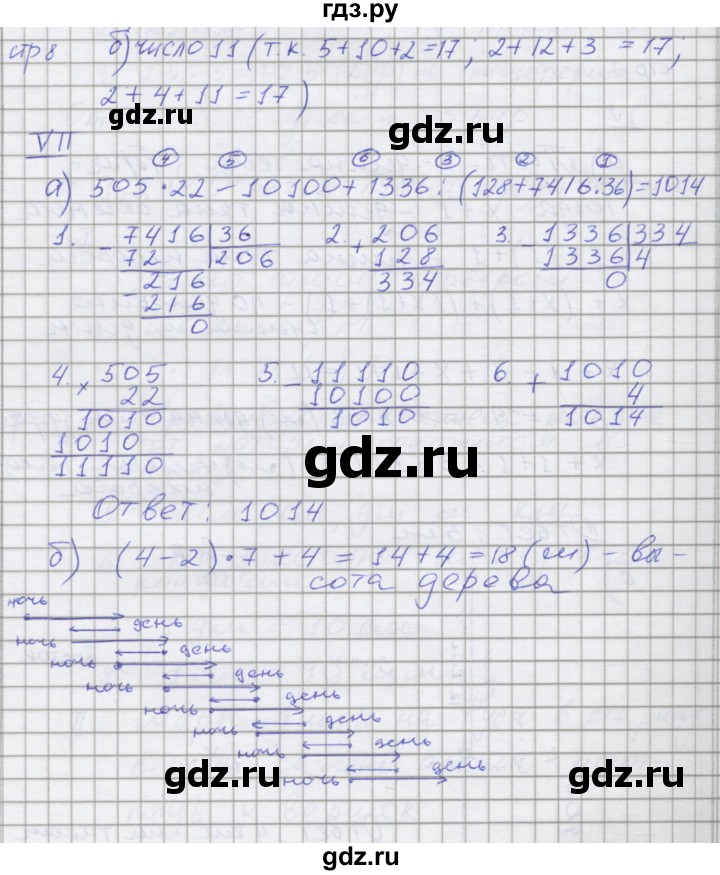 гдз.ру
стр 8 б) число 11 (т.к. 5+10+2=17; 2+12+3 =17;
2+4+11=17)
gdz.ru gdz.ru
VII
④ ⑤ ⑥ ③ ② ①
а) 505·22-10100+1336:(128+7416:36)=1014
1. - 7416 | 36 2. + 206 3. - 1336 | 334
72 206 128 1336 4
- 216 334 0
216
0
4. × 505 5. - 11110 6. + 1010
22 10100 4
1010 1010 1014
1010
11110
gdz.ru
Ответ: 1014
б) (4-2)·7+4=14+4=18(м) - вы-
сота дерева
ночь
день
ночь
день
ночь
день
ночь
день
ночь
день
ночь
день
ночь
день
ночь
gdz.ru gdz.ru
gdz.ru